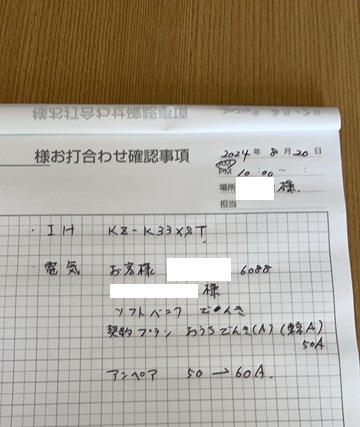 様お打合わせ確認事項
2024年 8月 20日
AM
PM 10:00 ~ :
場所 様
担当
・IH KZ-K33XST
・電気 お客様 6088
様
ソフトバンク でんき
契約プラン おうちでんき(A) (東京A)
50A
アンペア 50 → 60A.